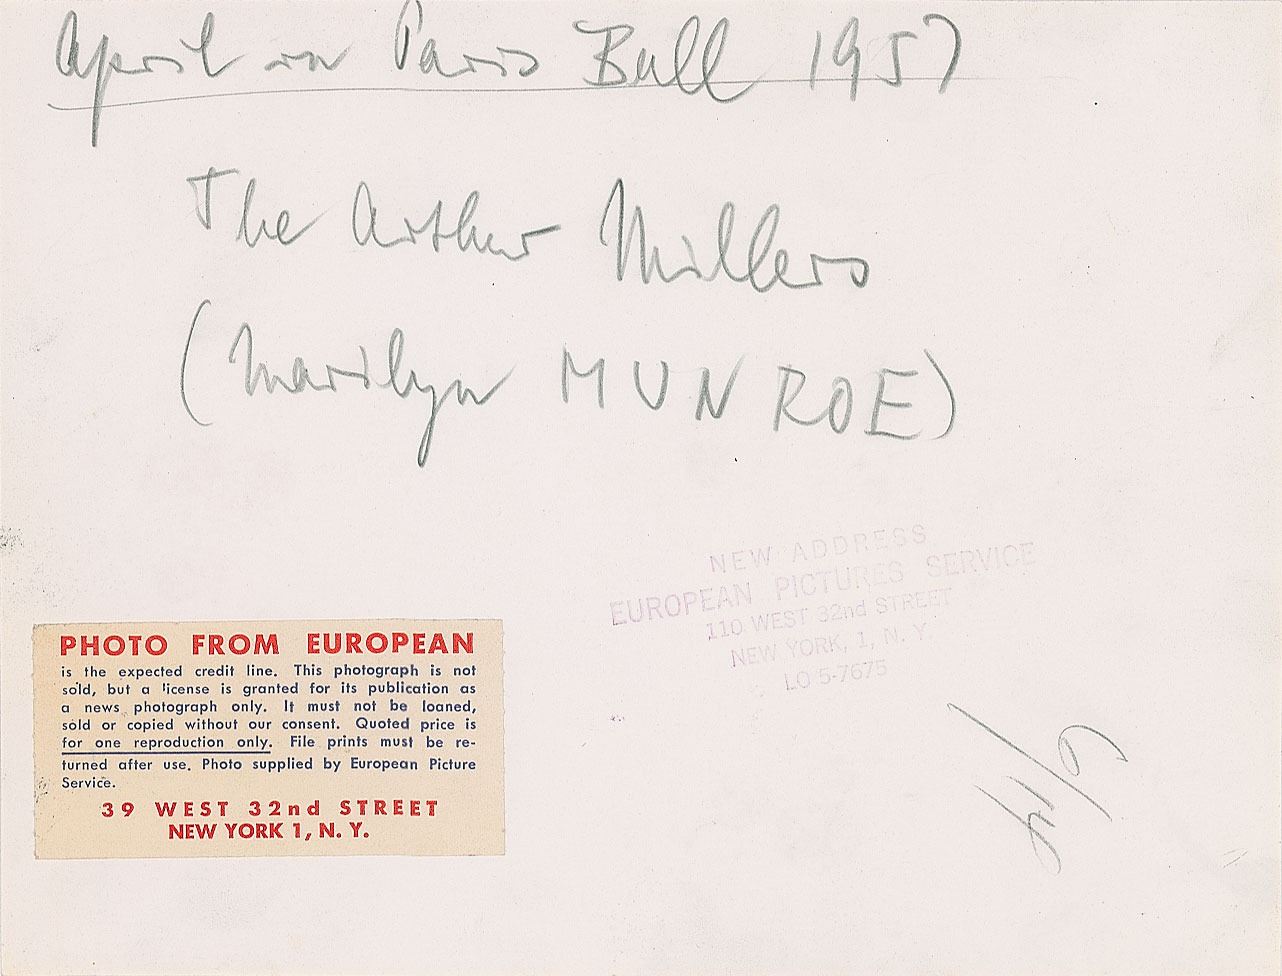 April in Paris Ball 1957
The Arthur Millers
(Marilyn MUNROE)
NEW ADDRESS
EUROPEAN PICTURES SERVICE
110 WEST 32nd STREET
NEW YORK, 1, N. Y.
LO 5-7675
PHOTO FROM EUROPEAN
is the expected credit line. This photograph is not
sold, but a license is granted for its publication as
a news photograph only. It must not be loaned,
sold or copied without our consent. Quoted price is
for one reproduction only. File prints must be re-
turned after use. Photo supplied by European Picture
Service.
39 WEST 32nd STREET
NEW YORK 1, N. Y.